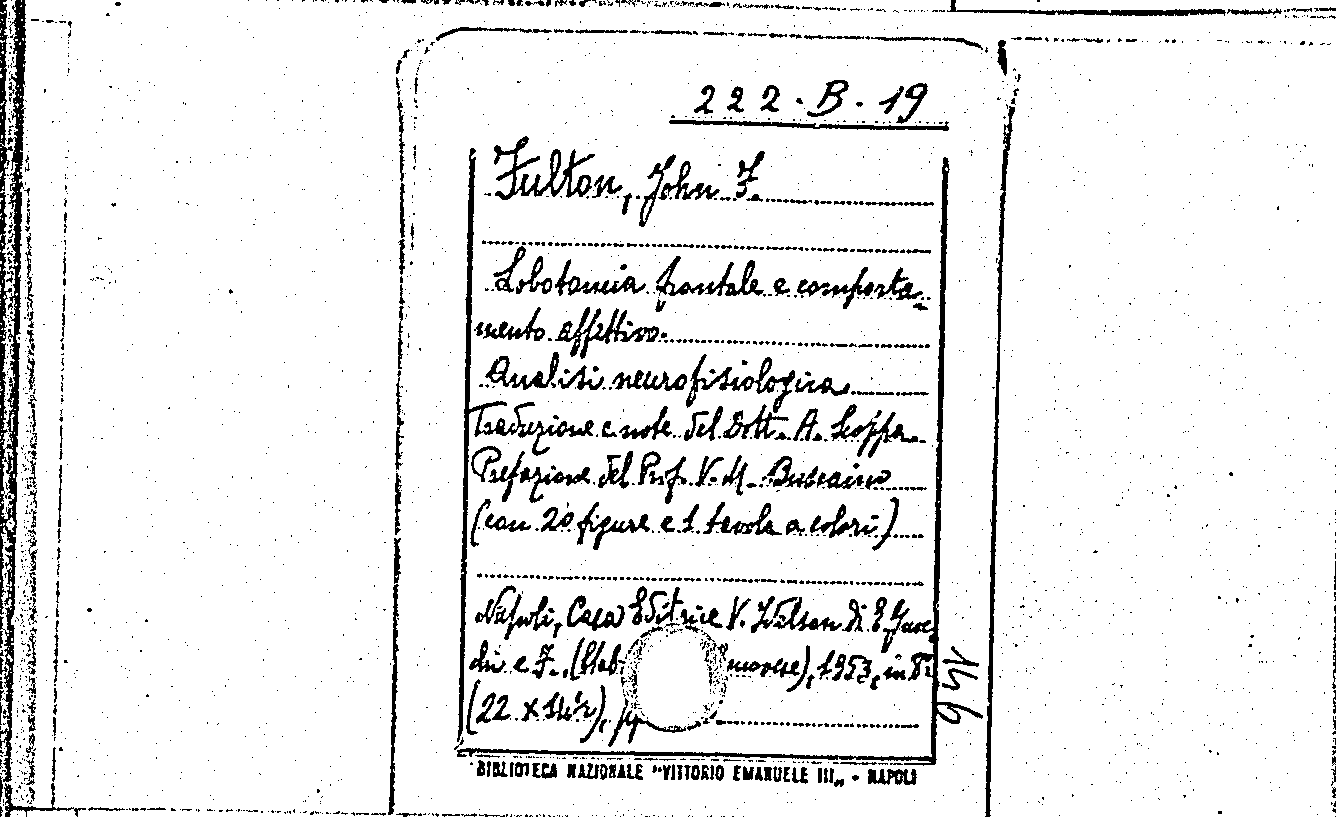 222.B.19
Fulton, John F.
Lobotomia frontale e comporta=
mento affettivo.
Analisi neurofisiologica
Traduzione e note del Dott. A. Scoppa
Prefazione del Prof. V. M. Buscaino
(con 20 figure e 1 tavola a colori)
Napoli, Casa Editrice V. Idelson di E. Gne
chi e F. (Stab.
1953, in 8º
(22 x
146
BIBLIOTECA NAZIONALE "VITTORIO EMANUELE III„ - NAPOLI